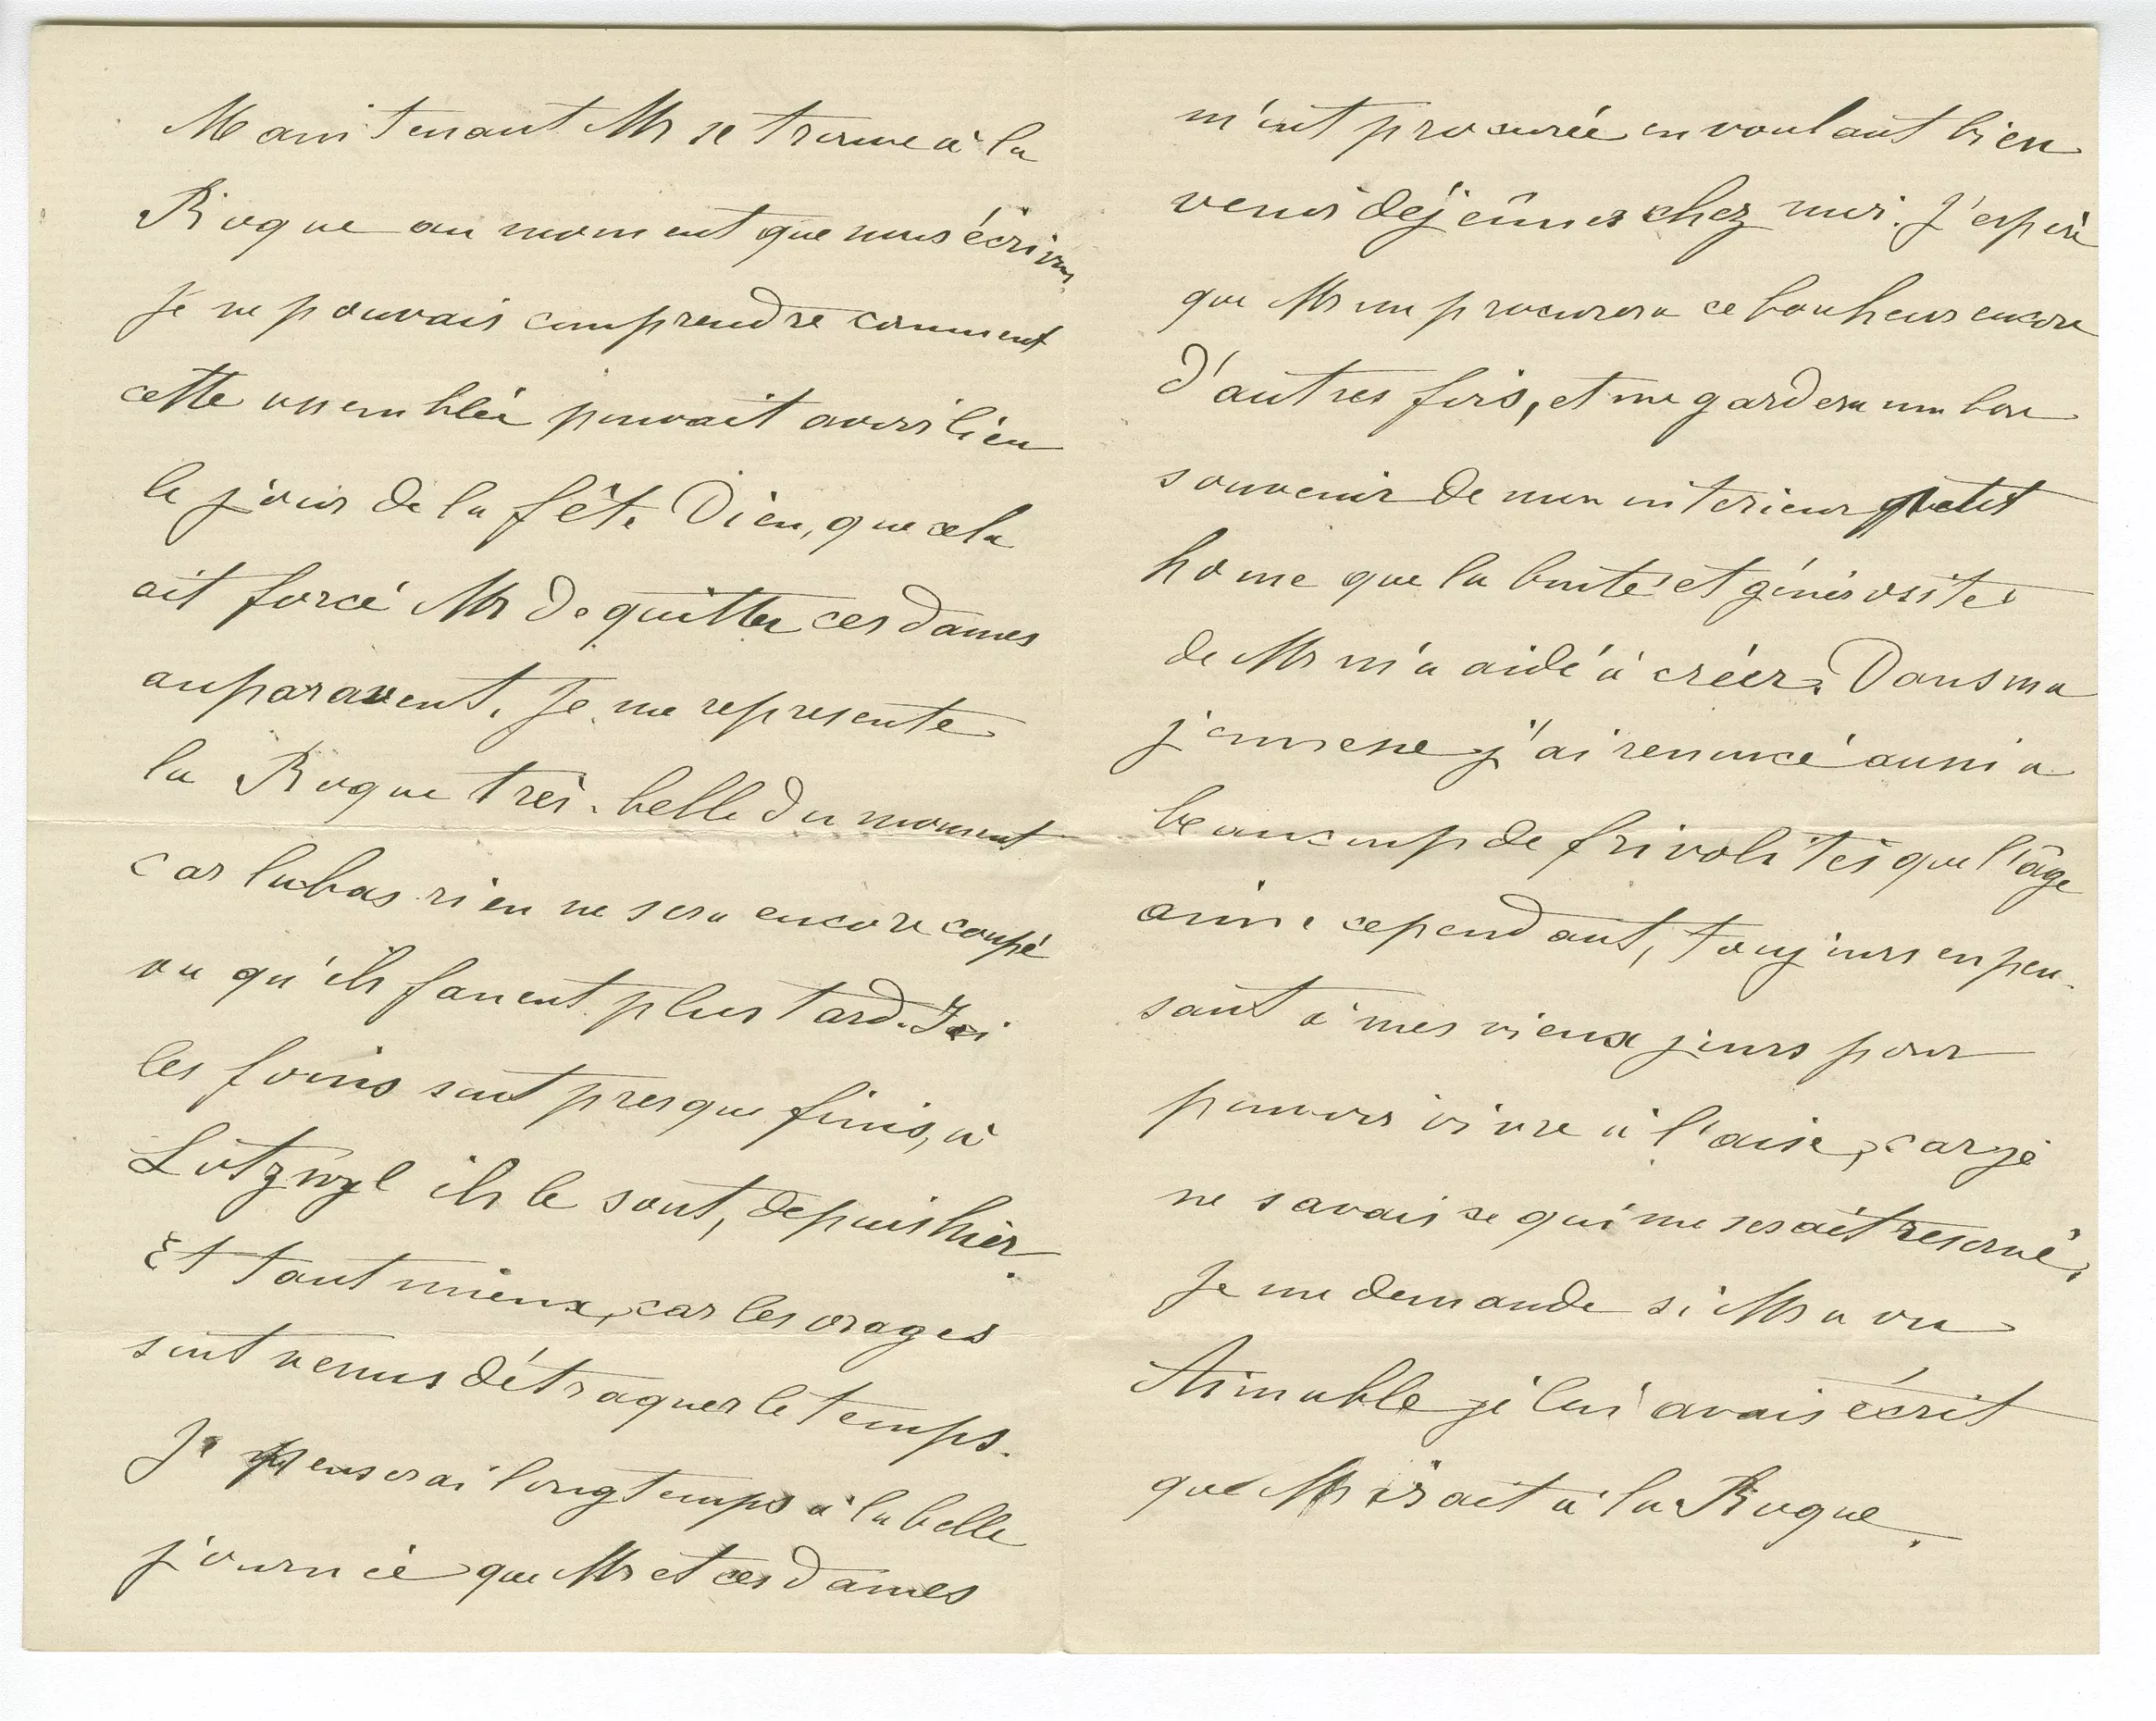 Maintenant Mr se trouve à la
Rogue au moment que nous écrivons
Je ne pouvais comprendre comment
cette assemblée pouvait avoir lieu
le jour de la fête Dieu, que cela
ait forcé Mr de quitter ces dames
auparavent. Je me represente
la Rogue très-belle du moment
car labas rien ne sera encore coupé
vu qu'ils fanent plus tard. Ici
les foins sont presque finis, à
Lutzwyl ils le sont, depuis hier.
Et tant mieux, car les orages
sont venus détraquer le temps.
Je penserai longtemps à la belle
journée que Mr et ces dames
m'ont procurée en voulant bien
venir déjeûner chez moi. J'espère
que Mr me procurera ce bonheur encore
d'autres fois, et me gardera un bon
souvenir de mon interieur petit
home que la bonté et générosité
de Mr m'a aidé à créer. Dans ma
jeunesse j'ai renoncé aussi a
beaucoup de frivolités que l'âge
aime cependant, toujours en pen-
sant à mes vieux jours pour
pouvoir vivre à l'aise, car je
ne savais ce qui me serait reservé.
Je me demande si Mr a vu
Aimable je lui avais écrit
que Mr irait à la Rogue.